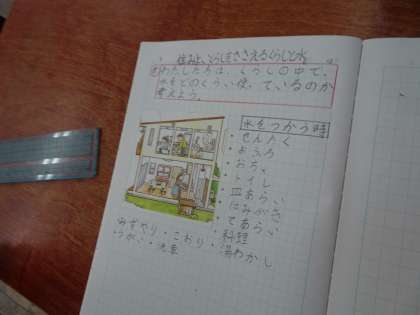 住みよいくらしをささえるくらしと水
わたしたちは、くらしの中で、
水をどのくらい使っているのか
考えよう。
水をつかう時
・せんたく
・おふろ
・おちゃ
・トイレ
・皿あらい
・はみがき
・てあらい
・料理
・湯わかし
・みずやり・こおり
・うがい・洗車